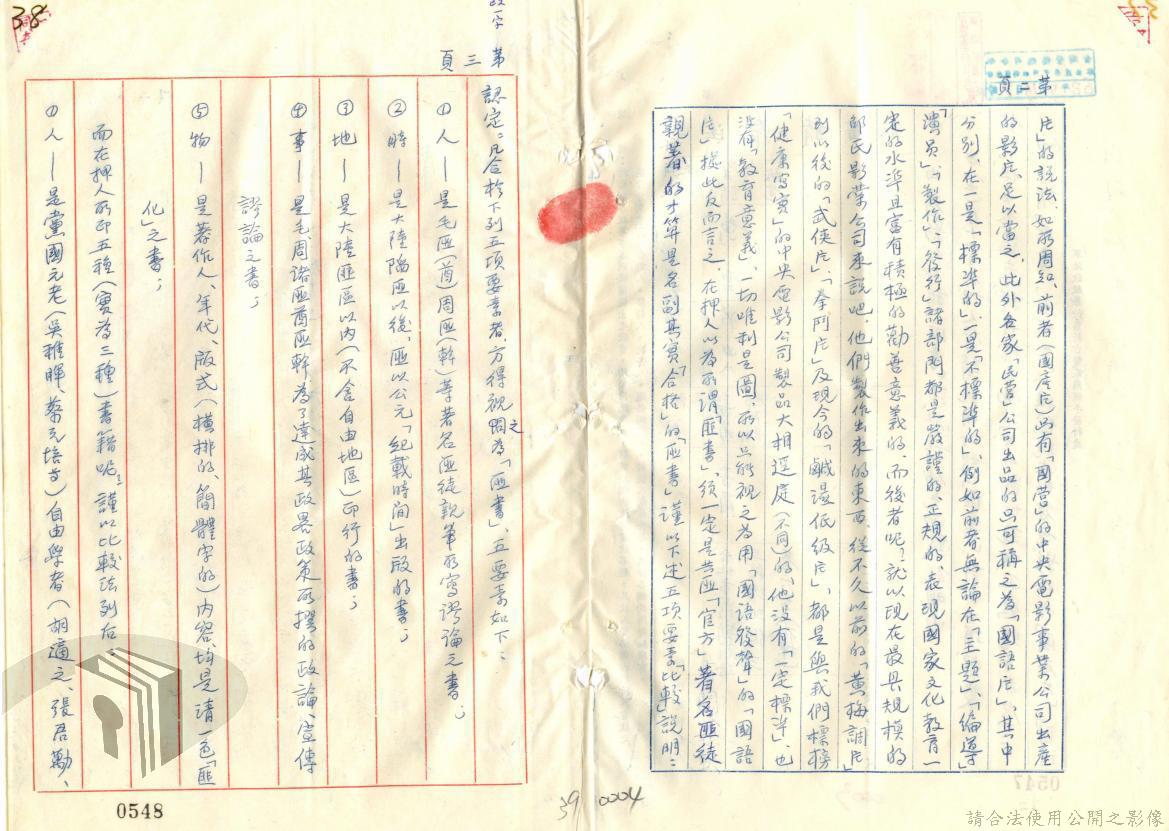 第二頁
片」的說法、如所周知、前者(國產片)只有「國營」的中央電影事業公司出產
的影片、足以當之、此外各家「民營」公司出品的只可稱之為「國語片」、其中
分別、在一是「標準的」、一是「不標準的」、例如前者無論在「主題」、「編導」
「演員」、「製作」、「發行」諸部門都是嚴謹的、正規的、表現國家文化教育一
定的水準且富有積極的勸善意義的、而後者呢?就以現在最具規模的
邵氏影業公司來說吧、他們製作出來的東西、從不久以前的「黃梅調片」
到以後的「武俠片」、「拳鬥片」及現今的「鹹濕低級片」、都是與我們標榜
「健康寫實」的中央電影公司製品大相逕庭(不同)的、他沒有「一定標準」、也
沒有「教育意義」一切唯利是圖、所以只能視之為用「國語發聲」的「國語
片」據此反而言之、在押人以為所謂「匪書」、須一定是共匪「官方」著名匪徒
親著的才算是名副其實「合格」的「匪書」謹以下述五項要素「比較」說明:
第三頁
認定:凡合於下列五項要素者、方得視之為「匪書」、五要素如下:
①人—是毛匪(酋)周匪(幹)等著名匪徒親筆所寫謬論之書;
②時—是大陸陷匪以後、匪以公元「紀載時間」出版的書;
③地—是大陸匪區以內(不含自由地區)印行的書;
④事—是毛、周諸匪酋匪幹、為了達成其政畧政策所撰的政論、宣傳
謬論之書;
⑤物—是著作人、年代、版式(橫排的、簡體字的)內容、均是清一色「匪
化」之書;
而在押人所印五種(實為三種)書籍呢?謹以比較法列后、
①人—是黨國元老(吳稚暉、蔡元培等)自由學者(胡適之、張君勱、
38
0548
0547
39 0004
請合法使用公開之影像